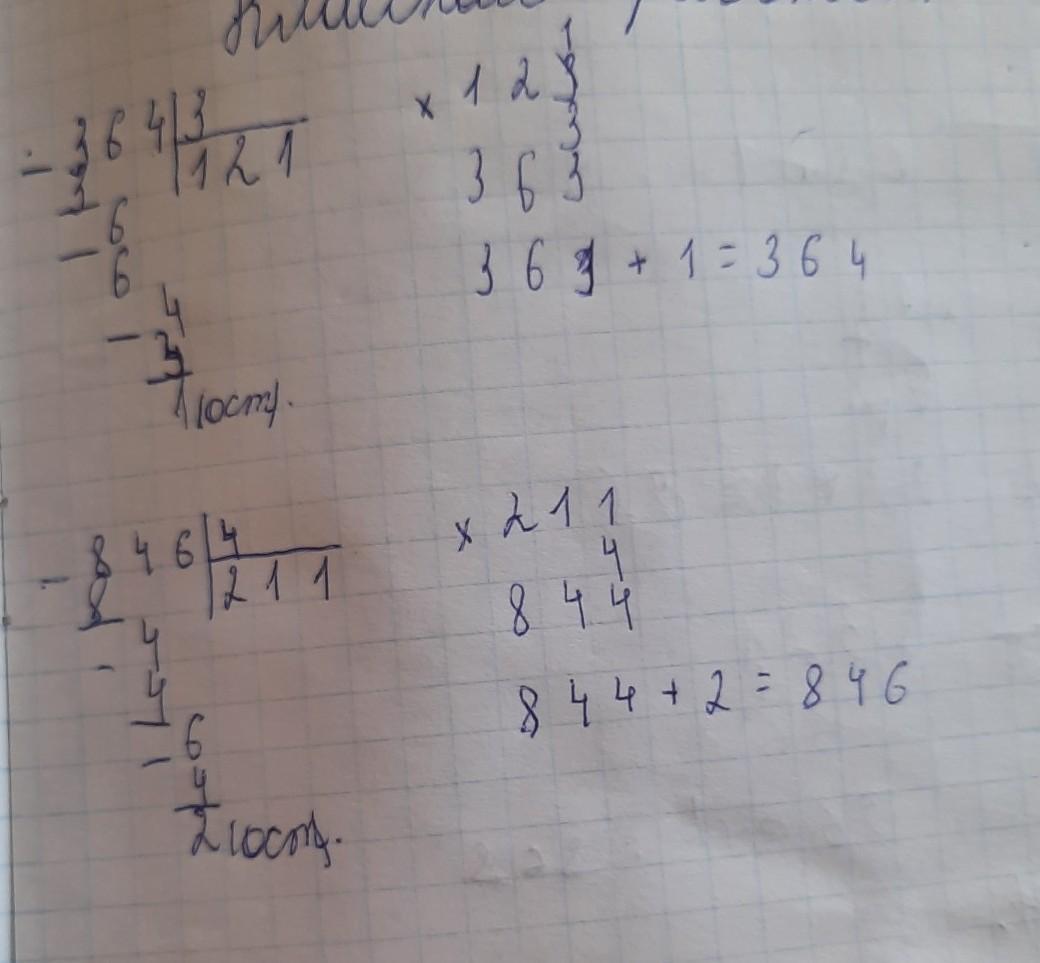 364 | 3
3 | 121
6
6
4
3
1 (ост).
1
× 123
3
363
363 + 1 = 364
846 | 4
8 | 211
4
4
6
4
2 (ост).
× 211
4
844
844 + 2 = 846